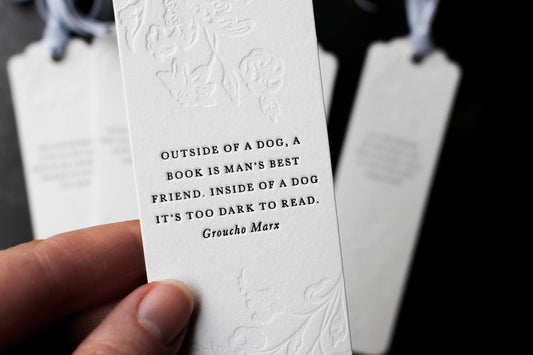 OUTSIDE OF A DOG, A
BOOK IS MAN'S BEST
FRIEND. INSIDE OF A DOG
IT'S TOO DARK TO READ.
Groucho Marx